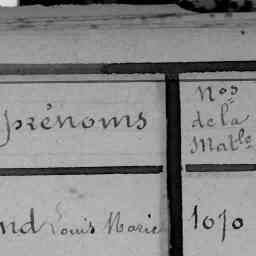 prénoms
Nos
de la
Matle
nd Louis Marie
1070